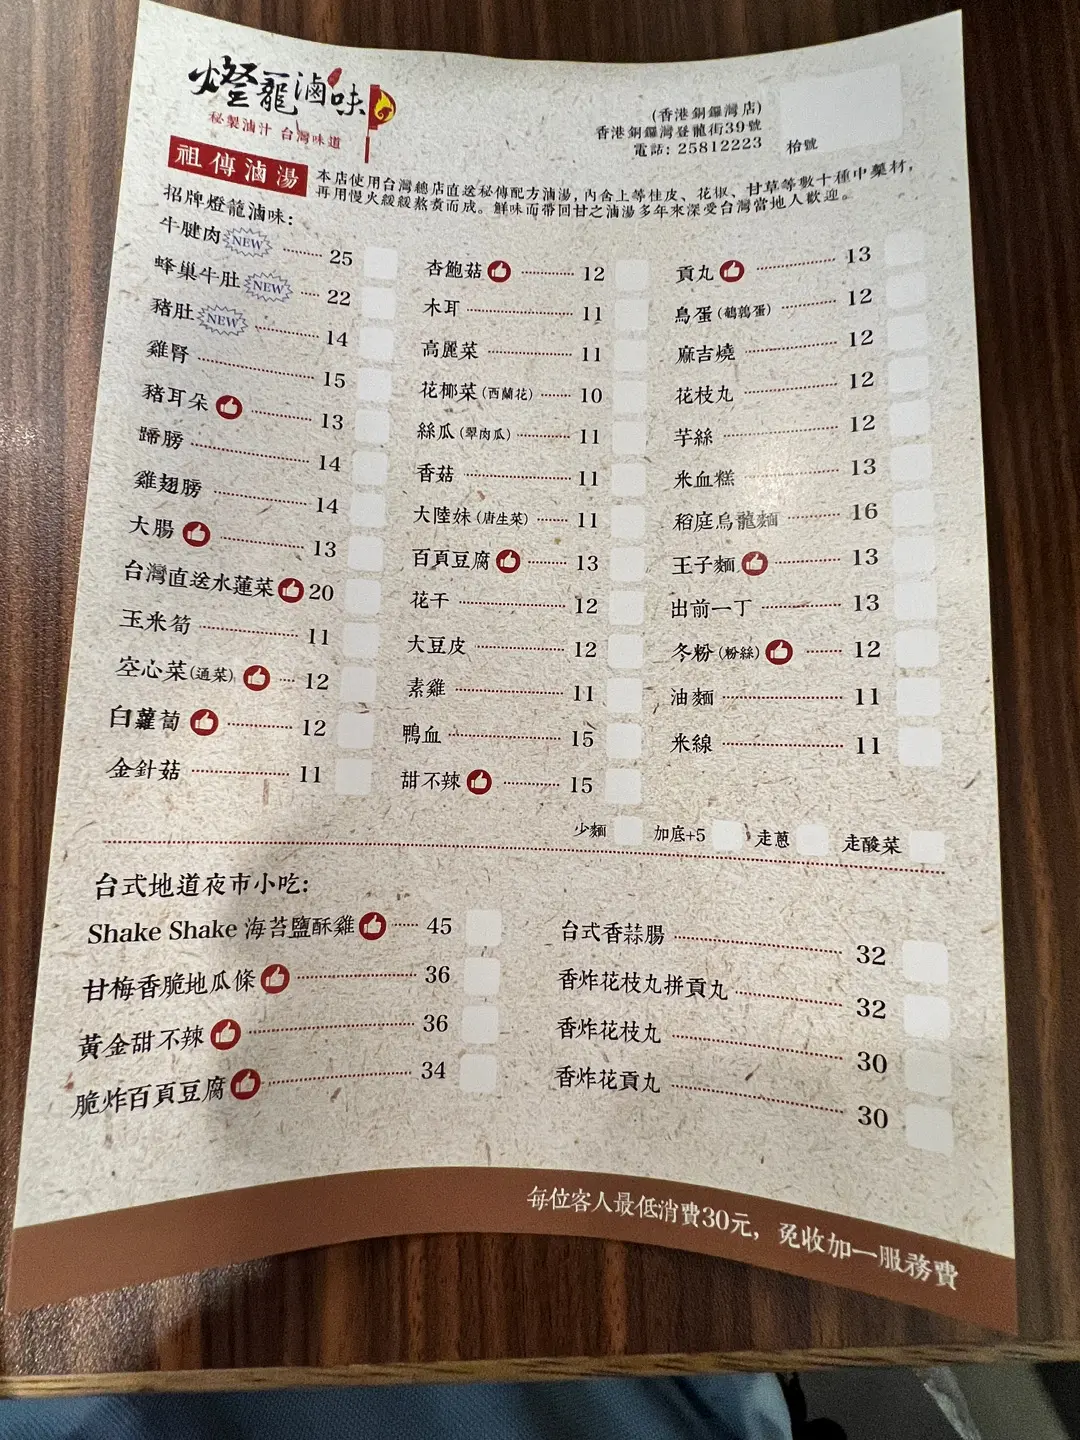 燈籠滷味
秘製滷汁 台灣味道
(香港銅鑼灣店)
香港銅鑼灣登龍街39號
電話: 25812223
枱號
祖傳滷湯
本店使用台灣總店直送秘傳配方滷湯, 內含上等桂皮、花椒、甘草等數十種中藥材,
再用慢火緩緩熬煑而成。鮮味而帶回甘之滷湯多年來深受台灣當地人歡迎。
招牌燈籠滷味:
牛腱肉 NEW 25
蜂巢牛肚 NEW 22
豬肚 NEW 14
雞腎 15
豬耳朵 13
蹄膀 14
雞翅膀 14
大腸 13
台灣直送水蓮菜 20
玉米筍 11
空心菜(通菜) 12
白蘿蔔 12
金針菇 11
杏鮑菇 12
木耳 11
高麗菜 11
花椰菜(西蘭花) 10
絲瓜(翠肉瓜) 11
香菇 11
大陸妹(唐生菜) 11
百頁豆腐 13
花干 12
大豆皮 12
素雞 11
鴨血 15
甜不辣 15
貢丸 13
鳥蛋(鵪鶉蛋) 12
麻吉燒 12
花枝丸 12
芋絲 12
米血糕 13
稻庭烏龍麵 16
王子麵 13
出前一丁 13
冬粉(粉絲) 12
油麵 11
米線 11
少麵 加底+5 走蔥 走酸菜
台式地道夜市小吃:
Shake Shake 海苔鹽酥雞 45
甘梅香脆地瓜條 36
黃金甜不辣 36
脆炸百頁豆腐 34
台式香蒜腸 32
香炸花枝丸拼貢丸 32
香炸花枝丸 30
香炸花貢丸 30
每位客人最低消費30元, 免收加一服務費